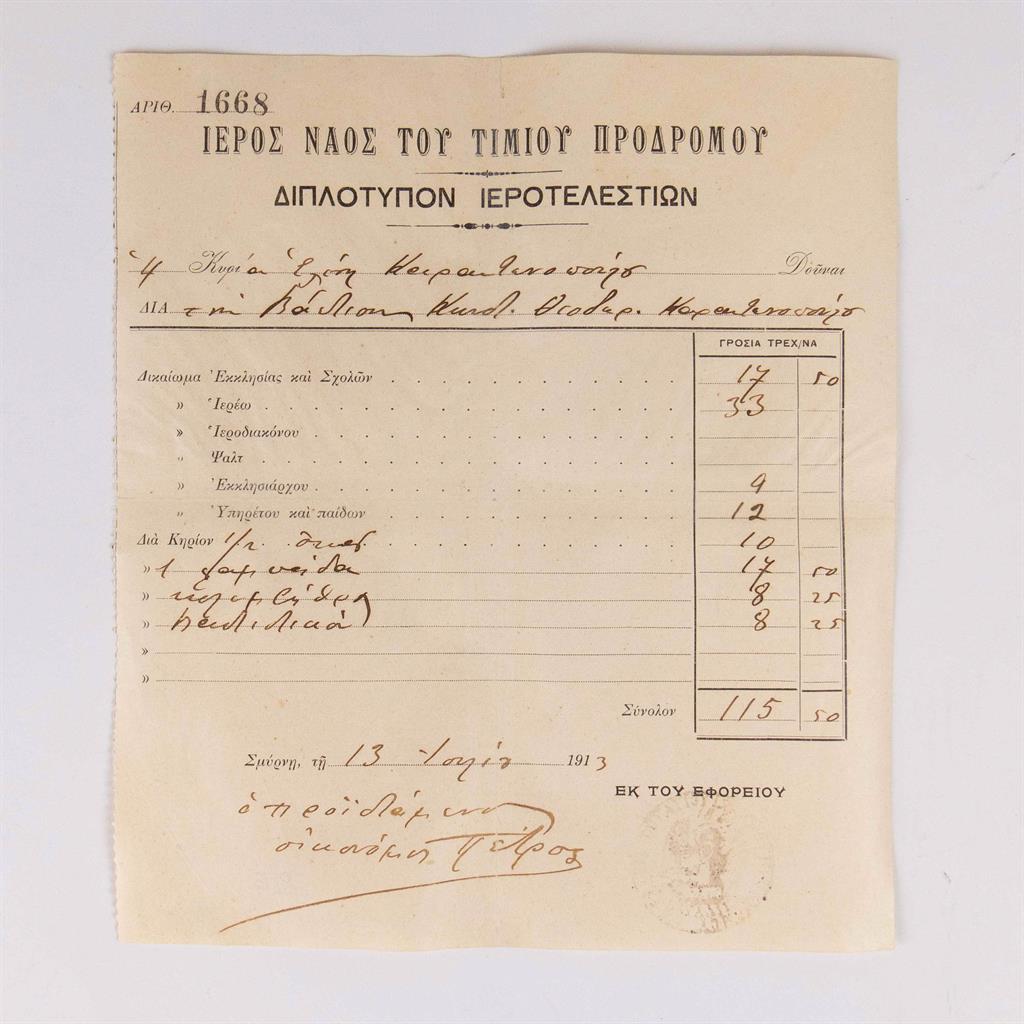 ΑΡΙΘ. 1668
ΙΕΡΟΣ ΝΑΟΣ ΤΟΥ ΤΙΜΙΟΥ ΠΡΟΔΡΟΜΟΥ
ΔΙΠΛΟΤΥΠΟΝ ΙΕΡΟΤΕΛΕΣΤΙΩΝ
Ἡ Κυρία Ἑλένη Καραντωνοπούλου Δοῦναι
ΔΙΑ τὴν Βάπτισιν Κωνστ. Θεοδωρ. Καραντωνοπούλου
ΓΡΟΣΙΑ ΤΡΕΧ/ΝΑ
Δικαίωμα Ἐκκλησίας καὶ Σχολῶν 17 50
» Ἱερέω 33
» Ἱεροδιακόνου
» Ψαλτ
» Ἐκκλησιάρχου 9
» Ὑπηρέτου καὶ παίδων 12
Διὰ Κηρίον 1/2 10
» 1 λαμπάδα 17 50
» κολυμβήθρα 8 25
» 8 25
»
»
Σύνολον 115 50
Σμύρνῃ, τῇ 13 Ἰουλίου 1913
ΕΚ ΤΟΥ ΕΦΟΡΕΙΟΥ
ὁ προϊστάμενος
οἰκονόμος Πέτρος